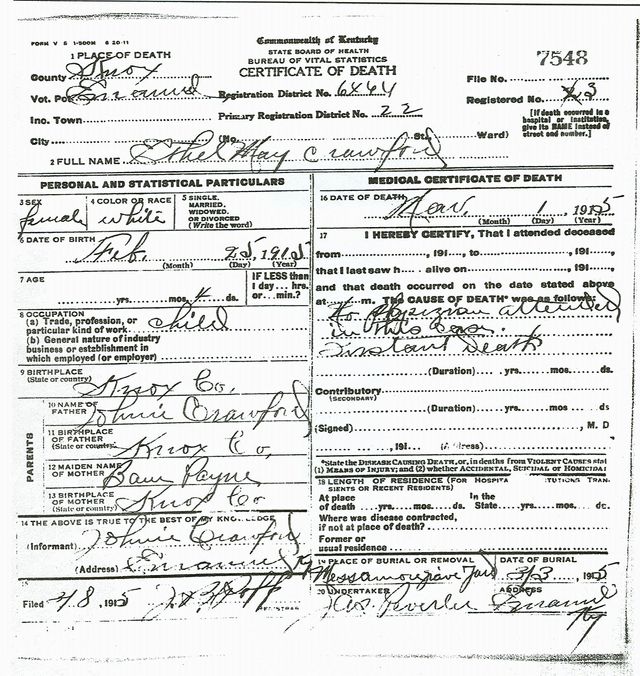 FORM V S 1-500M 6 20-11
Commonwealth of Kentucky
STATE BOARD OF HEALTH
BUREAU OF VITAL STATISTICS
CERTIFICATE OF DEATH
7548
1 PLACE OF DEATH
County Knox
Vot. Pct. Emanuel
Inc. Town
City
Registration District No. 6444
Primary Registration District No. 22
(No. St. Ward)
File No.
Registered No. 3
[If death occurred in a hospital or institution, give its NAME instead of street and number.]
2 FULL NAME Ethel May Crawford
PERSONAL AND STATISTICAL PARTICULARS
3 SEX female
4 COLOR OR RACE white
5 SINGLE, MARRIED, WIDOWED, OR DIVORCED (Write the word)
6 DATE OF BIRTH Feb. 25, 1915
(Month) (Day) (Year)
7 AGE
yrs. mos. 4 ds.
IF LESS than 1 day... hrs. or... min.?
8 OCCUPATION
(a) Trade, profession, or particular kind of work child
(b) General nature of industry business or establishment in which employed (or employer)
9 BIRTHPLACE (State or country) Knox Co.
PARENTS
10 NAME OF FATHER Johnie Crawford
11 BIRTHPLACE OF FATHER (State or country) Knox Co,
12 MAIDEN NAME OF MOTHER Payne
13 BIRTHPLACE OF MOTHER (State or country) Knox Co
14 THE ABOVE IS TRUE TO THE BEST OF MY KNOWLEDGE
(Informant) Johnie Crawford
(Address) Emanuel Ky
15
Filed 4 8, 1915
REGISTRAR
MEDICAL CERTIFICATE OF DEATH
16 DATE OF DEATH Mar. 1, 1915
(Month) (Day) (Year)
17 I HEREBY CERTIFY, That I attended deceased
from , 191 , to , 191 ,
that I last saw h alive on , 191 ,
and that death occurred on the date stated above
at m. The CAUSE OF DEATH* was as follows:
attended
in this case.
Instant Death
(Duration) yrs. mos. ds.
Contributory (SECONDARY)
(Duration) yrs. mos ds
(Signed) , M. D
, 191 (Address)
*State the DISEASE CAUSING DEATH, or, in deaths from VIOLENT CAUSES state (1) MEANS OF INJURY; and (2) whether ACCIDENTAL, SUICIDAL or HOMICIDAL
18 LENGTH OF RESIDENCE (FOR HOSPITALS, INSTITUTIONS, TRANSIENTS OR RECENT RESIDENTS)
At place of death yrs. mos. ds.
In the State yrs. mos. ds.
Where was disease contracted, if not at place of death?
Former or usual residence
19 PLACE OF BURIAL OR REMOVAL
DATE OF BURIAL 3/3, 1915
20 UNDERTAKER
ADDRESS Emanuel Ky